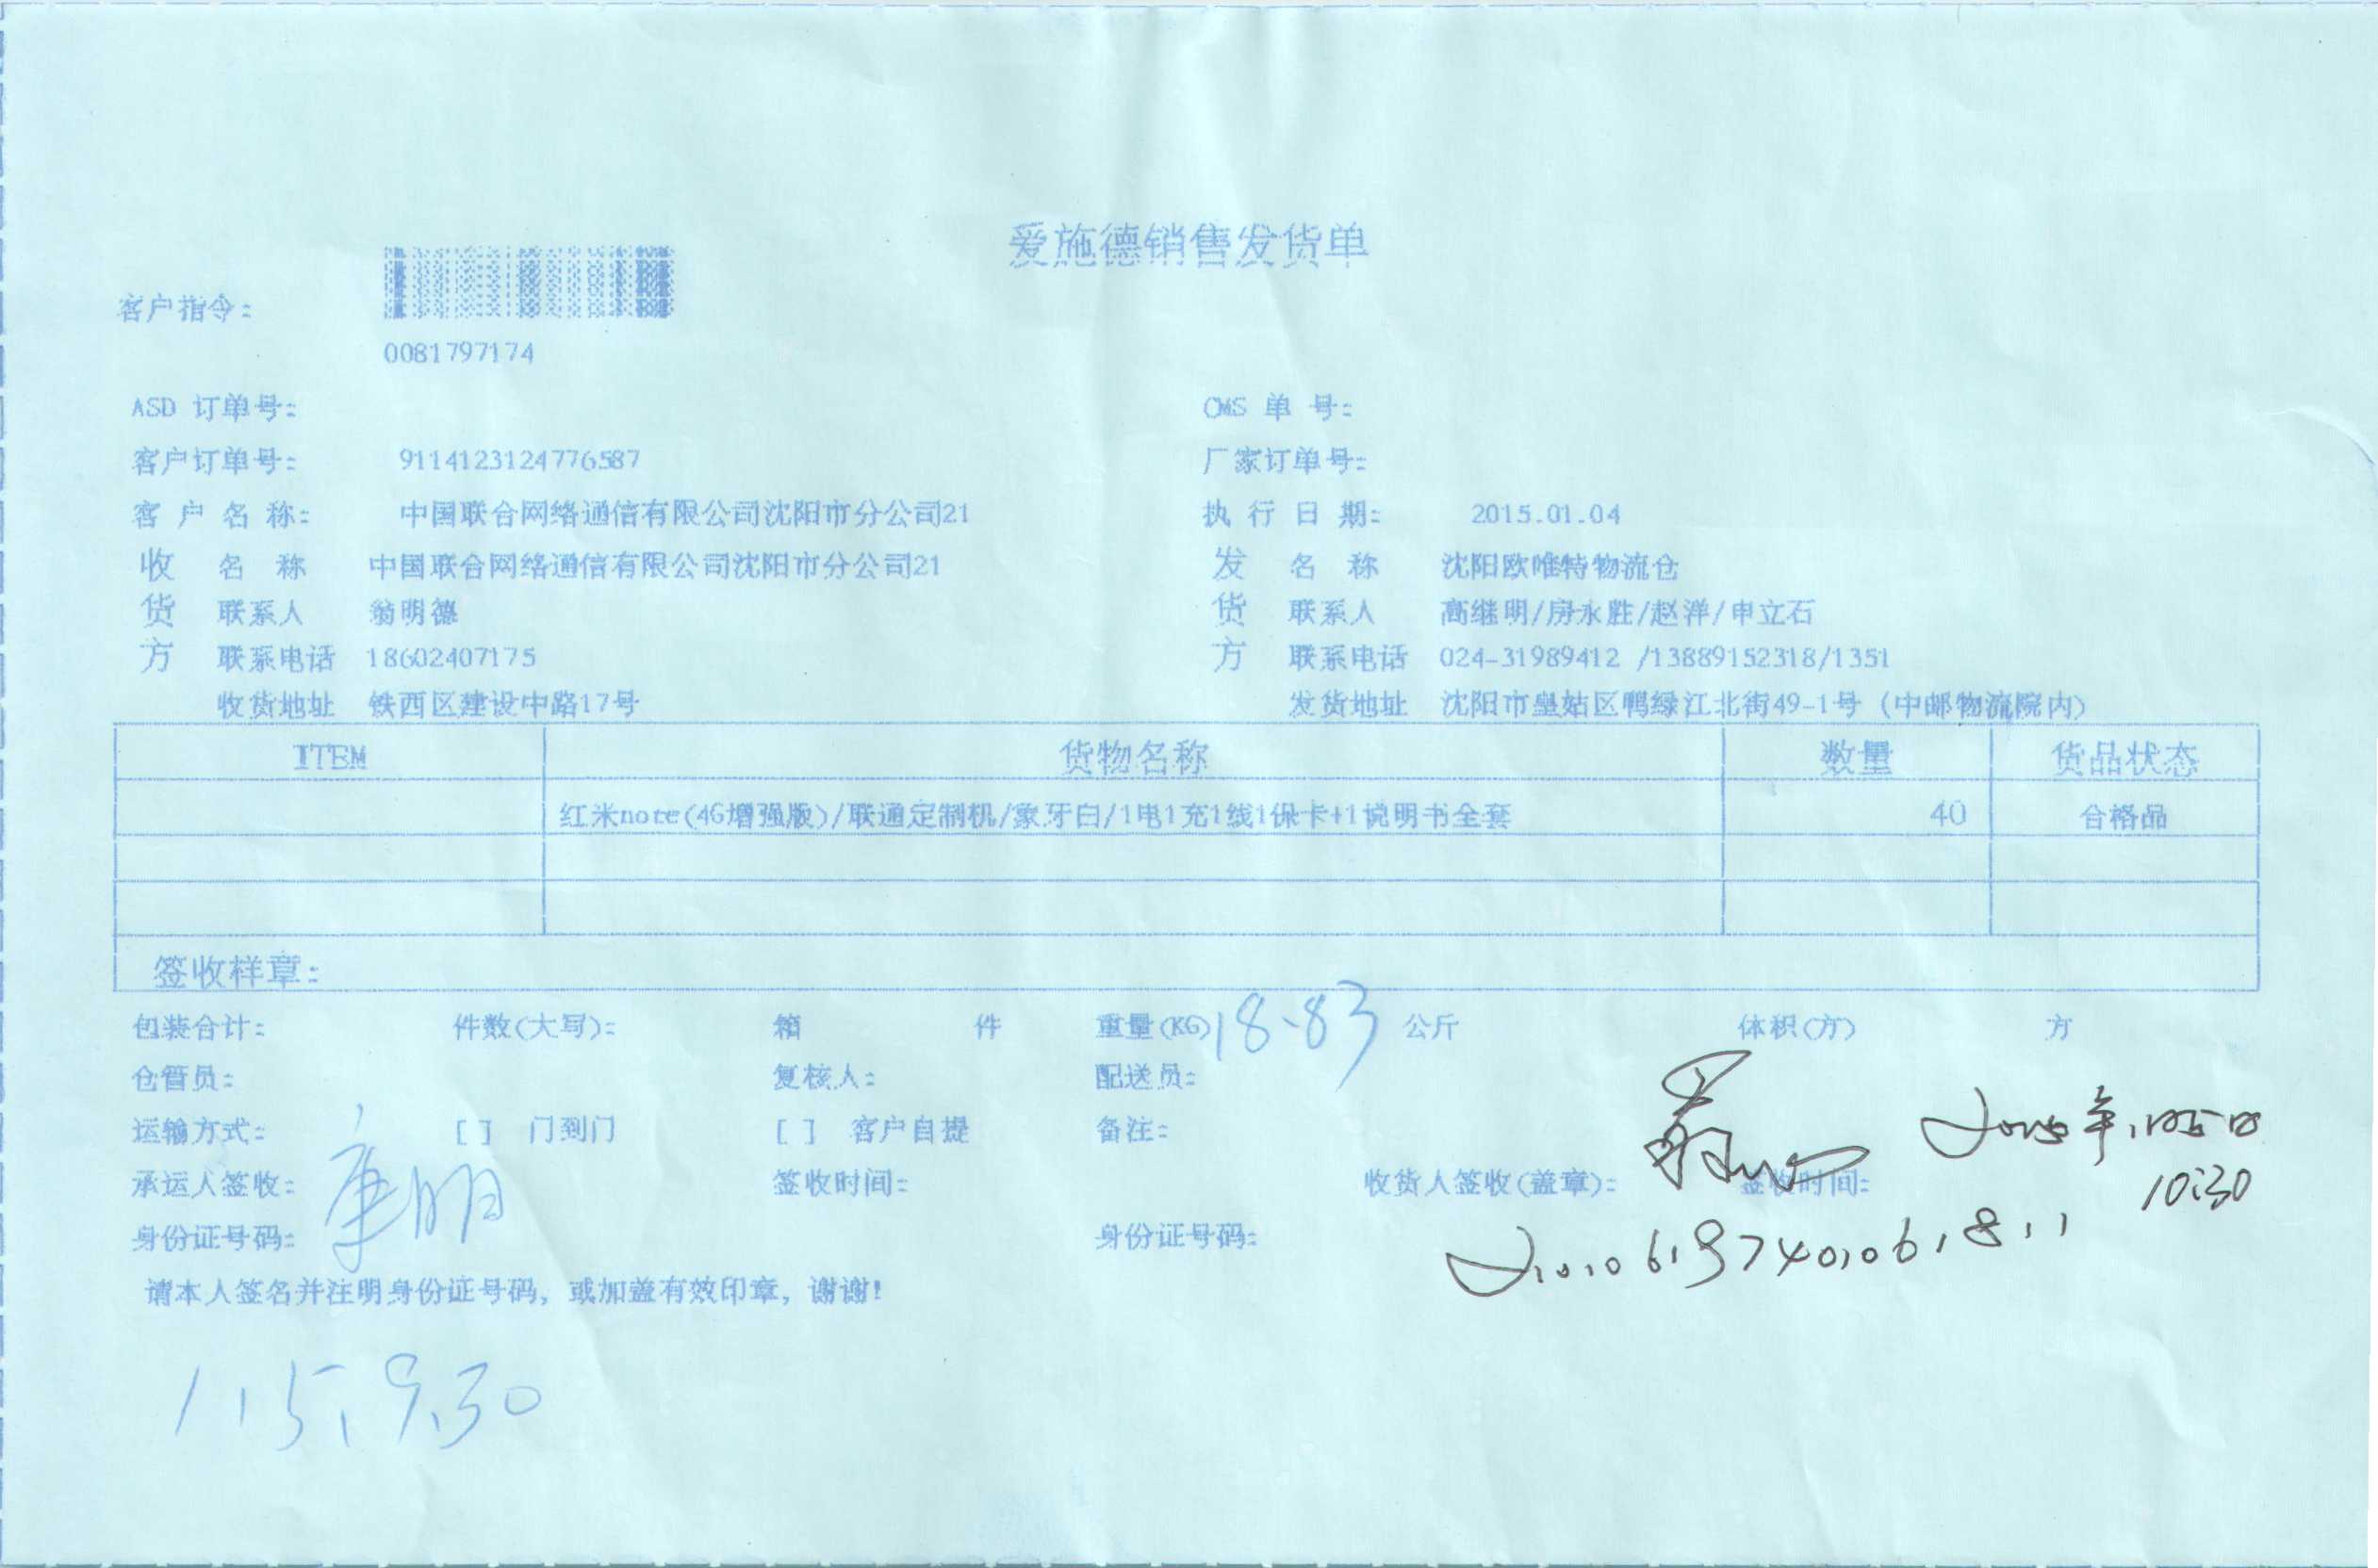 爱施德销售发货单
客户指令:
0081797174
ASD 订单号: OMS 单 号:
客户订单号: 9114123124776587 厂家订单号:
客 户 名 称: 中国联合网络通信有限公司沈阳市分公司21 执 行 日 期: 2015.01.04
收 名 称 中国联合网络通信有限公司沈阳市分公司21 发 名 称 沈阳欧唯特物流仓
货 联系人 翁明德 货 联系人 高继明/房永胜/赵洋/申立石
方 联系电话 18602407175 方 联系电话 024-31989412 /13889152318/1351
收货地址 铁西区建设中路17号 发货地址 沈阳市皇姑区鸭绿江北街49-1号 (中邮物流院内)
ITEM 货物名称 数量 货品状态
红米note(4G增强版)/联通定制机/象牙白/1电1充1线1保卡+1说明书全套 40 合格品
签收样章:
包装合计: 件数(大写): 箱 件 重量(KG) 18.83 公斤 体积(方) 方
仓管员: 复核人: 配送员:
运输方式: [ ] 门到门 [ ] 客户自提 备注: 2015年1月5日
承运人签收: 签收时间: 收货人签收(盖章): 签收时间: 10:30
身份证号码: 身份证号码: 210106197401061811
请本人签名并注明身份证号码, 或加盖有效印章, 谢谢!
1.5, 9.30